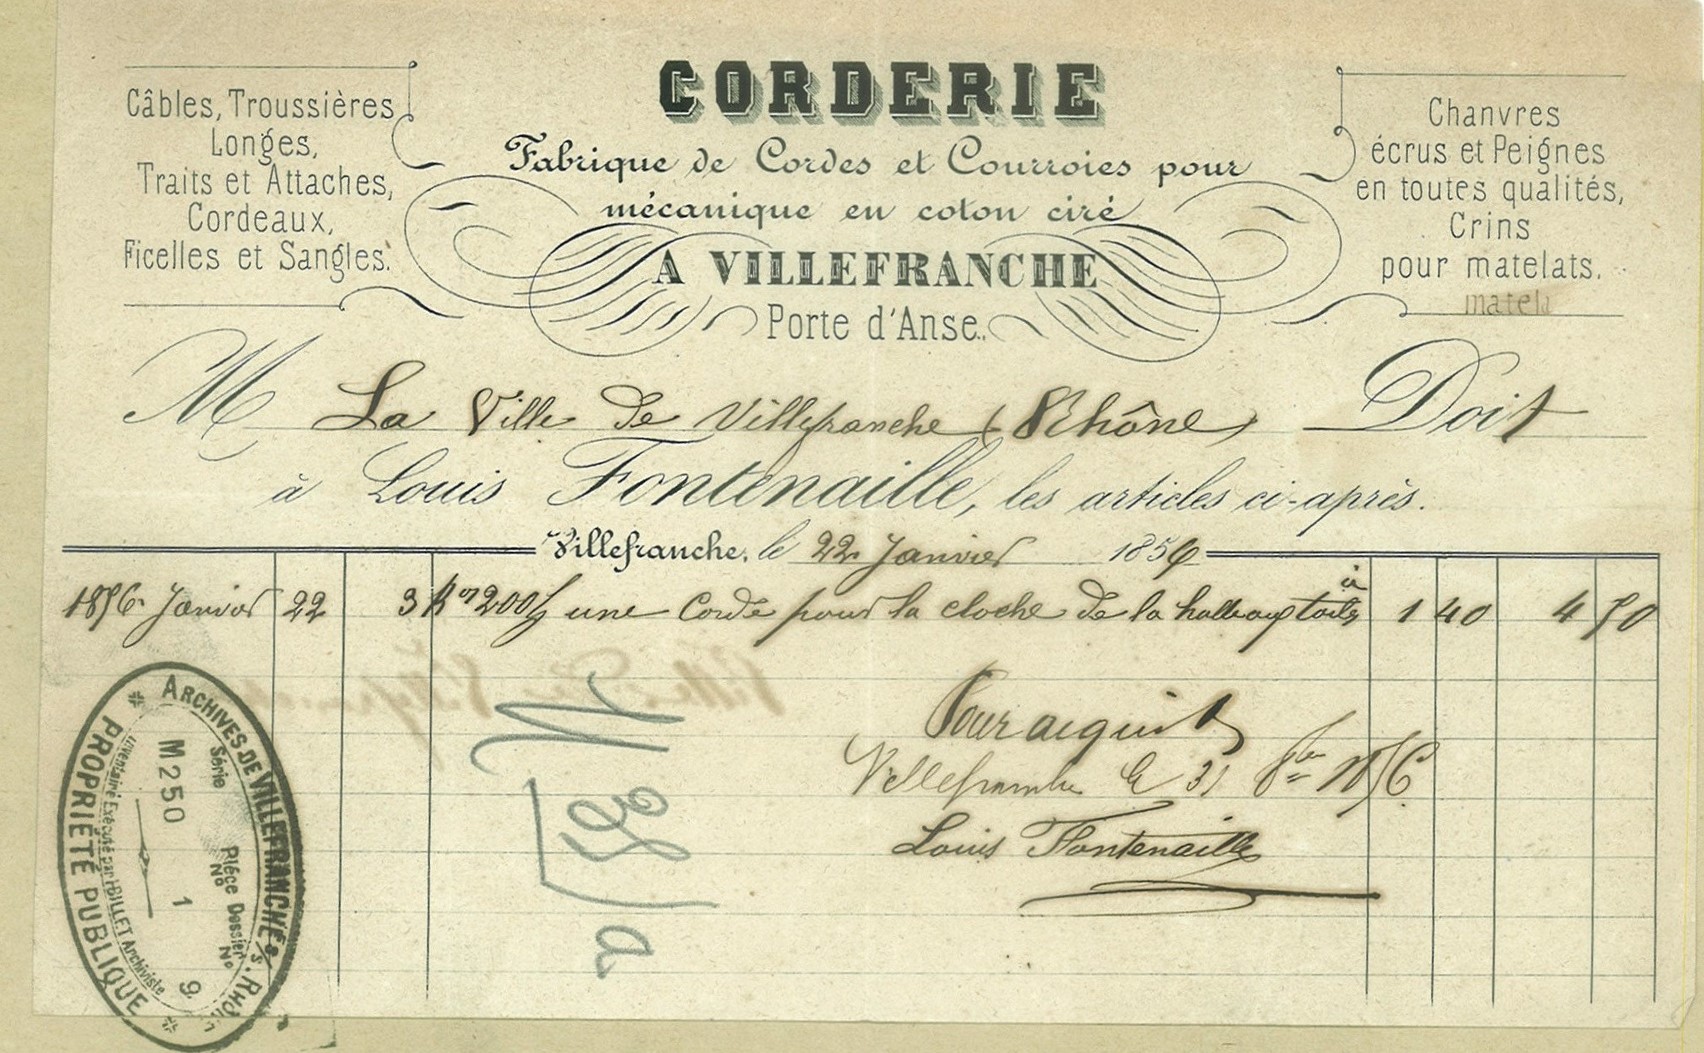 CORDERIE
Fabrique de Cordes et Courroies pour
mécanique en coton ciré
A VILLEFRANCHE
Porte d'Anse.
Câbles, Troussières
Longes,
Traits et Attaches,
Cordeaux,
Ficelles et Sangles.
Chanvres
écrus et Peignes
en toutes qualités,
Crins
pour matelats.
matela
M La Ville de Villefranche (Rhône) Doit
à Louis Fontenaille, les articles ci-après.
Villefranche, le 22 Janvier 1856
1856 Janvier 22 3 K 200 une Corde pour la cloche de la halle aux toiles à 1 40 4 50
Pour acquit
Villefranche le 31 1856
Louis Fontenaille
ARCHIVES DE VILLEFRANCHE s/s. RHÔ
Série Pièce No Dossier No
M 250 1 9
Inventaire Exécuté par I. BILLET Archiviste
PROPRIÉTÉ PUBLIQUE